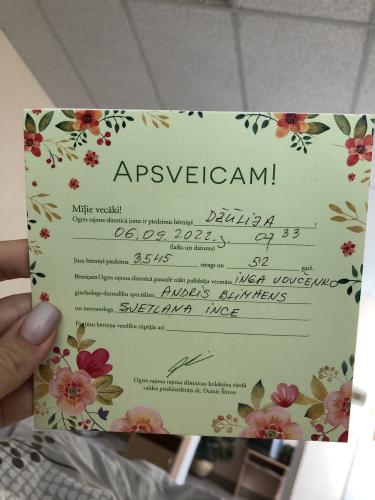 APSVEICAM!
Mīļie vecāki!
Ogres rajona slimnīcā jums ir piedzimis bērniņš DŽŪLIJA,
06.09.2022.g. 07 33
(laiks un datums)
Jūsu bērniņš piedzima 3545 smags un 52 garš.
Bērniņam Ogres rajona slimnīcā pasaulē nākt palīdzēja vecmāte INGA VOVČENKO
ginekologs-dzemdību speciālists ANDRIS BLIMHENS
un neonatologs SVETLANA INCE
Par jūsu bērniņu veselību rūpējās arī
Ogres rajona slimnīcas kolektīva vārdā
valdes priekšsēdētājs dr. Dainis Širovs